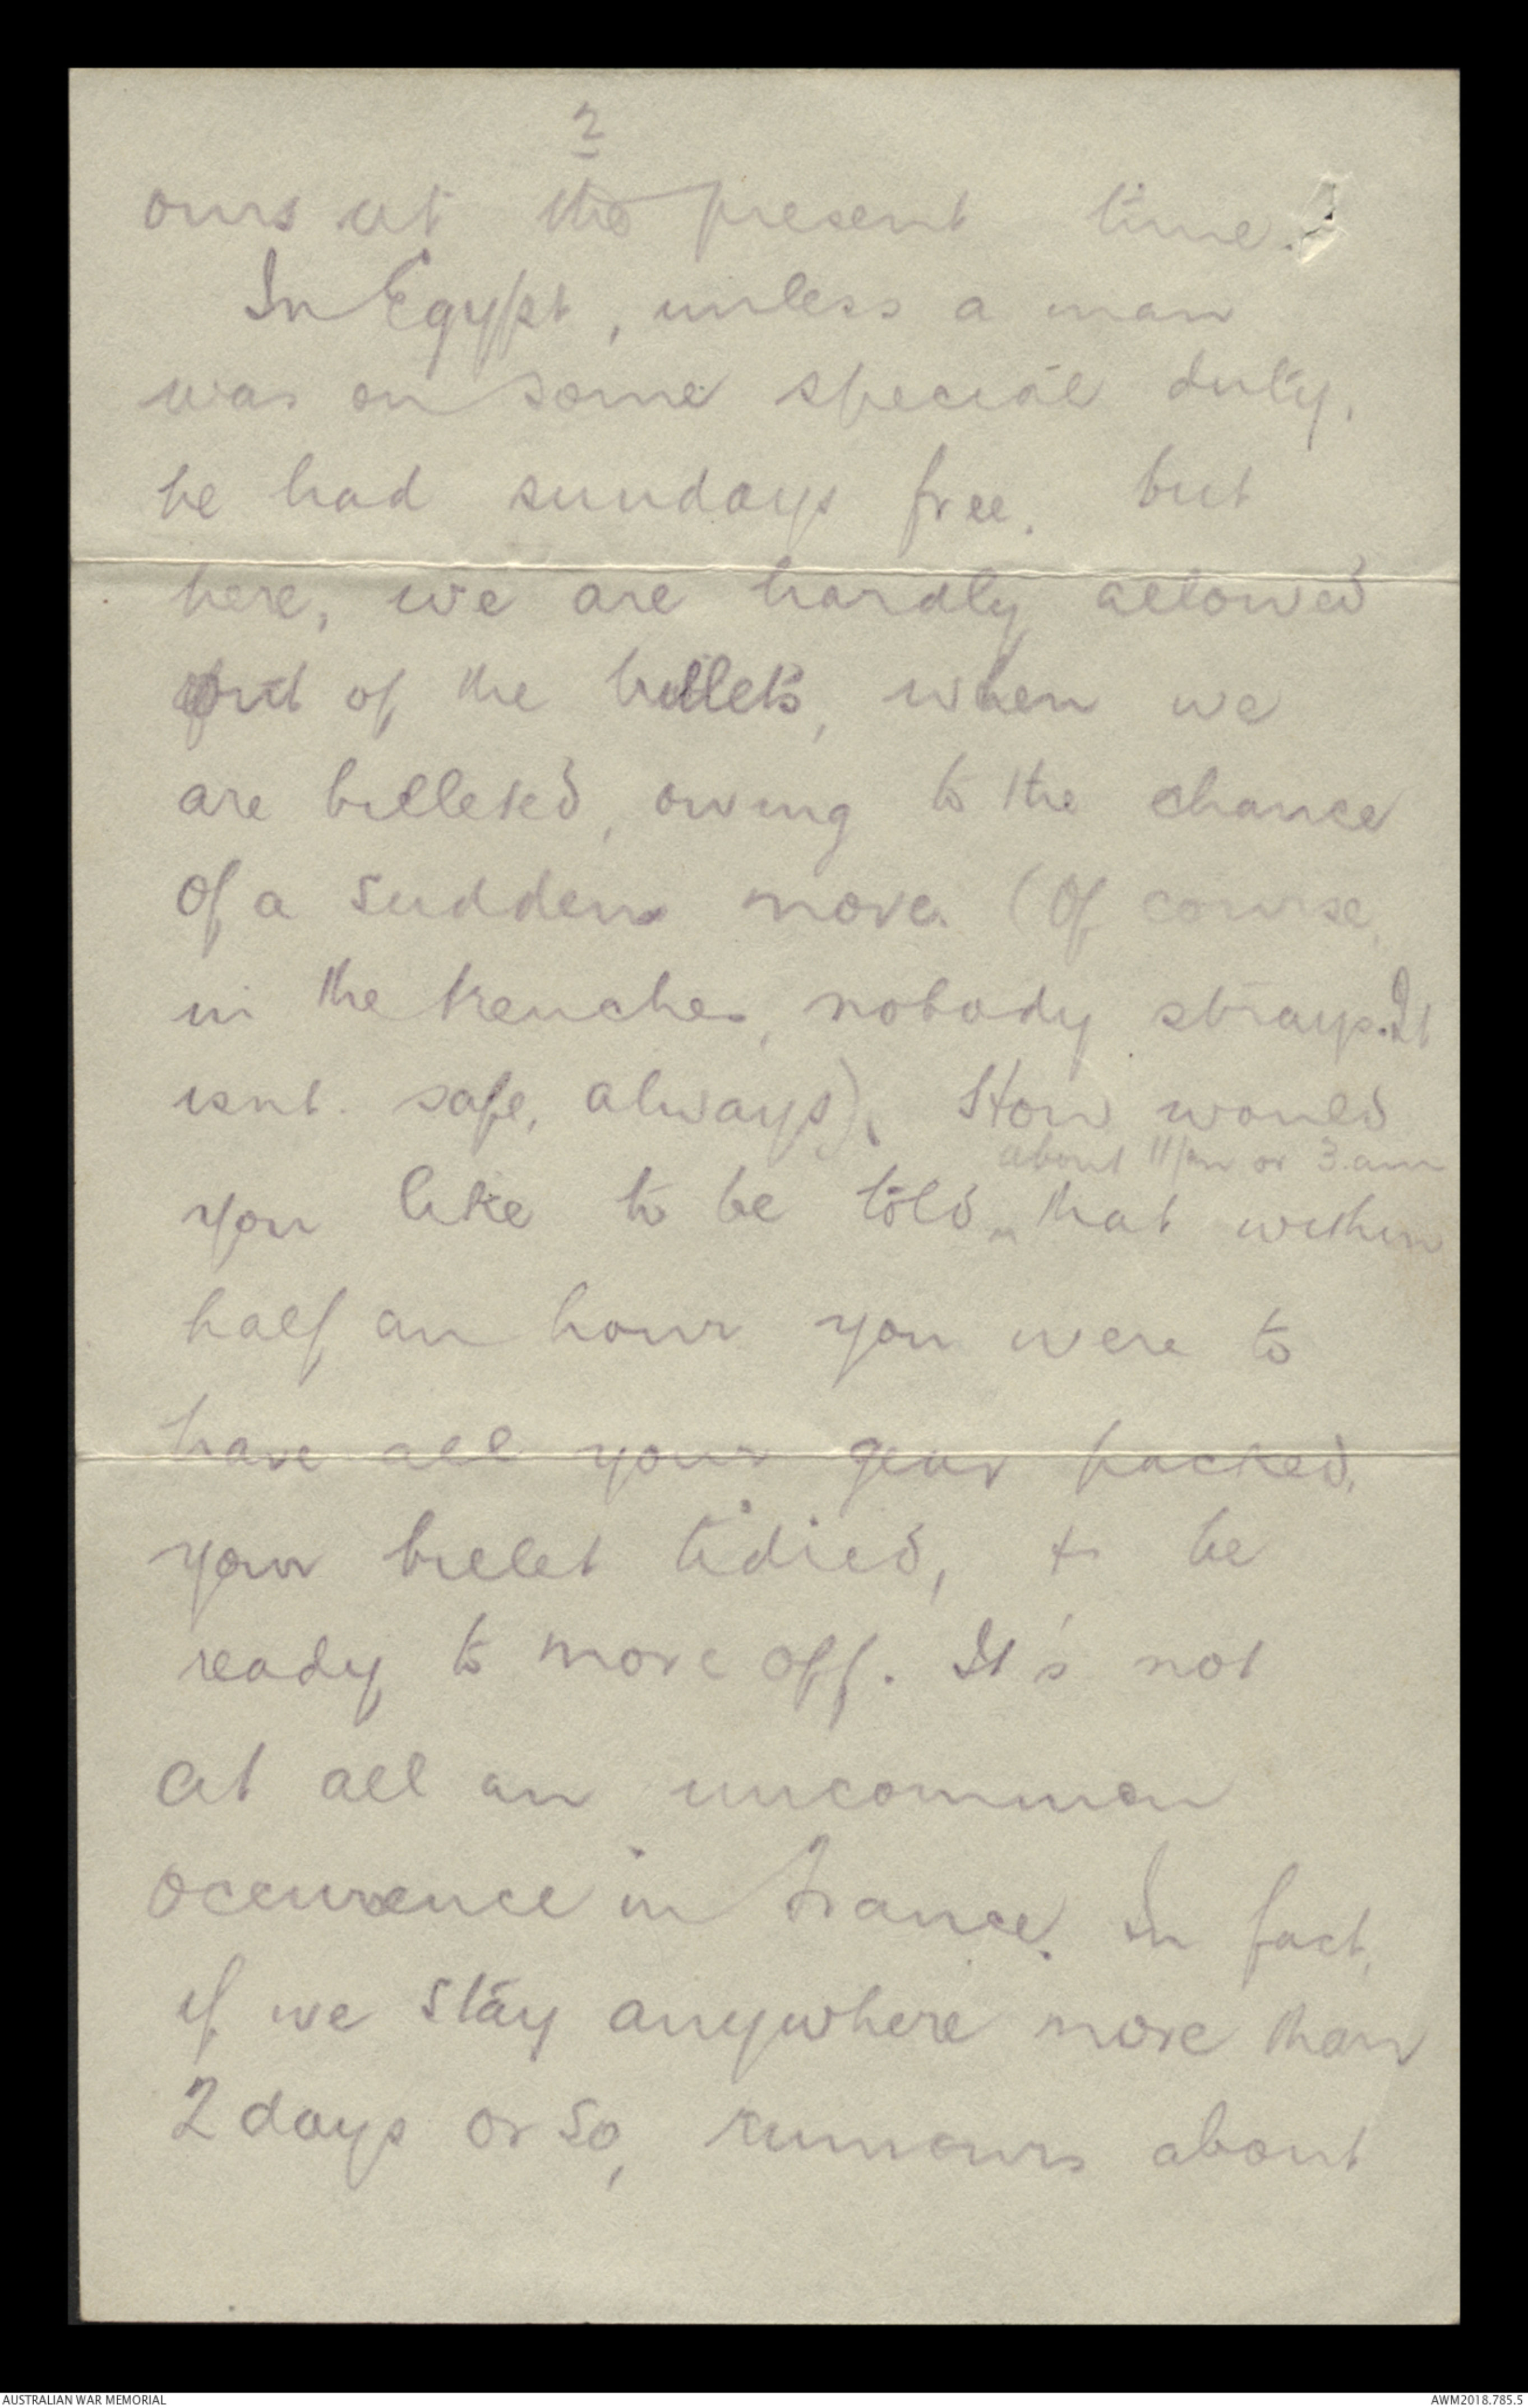 2
ours at the present time.
In Egypt, unless a man
was on some special duty,
he had sundays free. but
here, we are hardly allowed
out of the billets, when we
are billeted, owing to the chance
of a sudden move. (Of course,
in the trenches, nobody strays. It
isnt safe, always). How would
about 11pm or 3.am
you like to be told that within
half an hour you were to
have all your gear packed,
your billet tidied, & be
ready to move off. It's not
at all an uncommon
occurence in France. In fact,
if we stay anywhere more than
2 days or so, rumours about
AUSTRALIAN WAR MEMORIAL
AWM2018.785.5